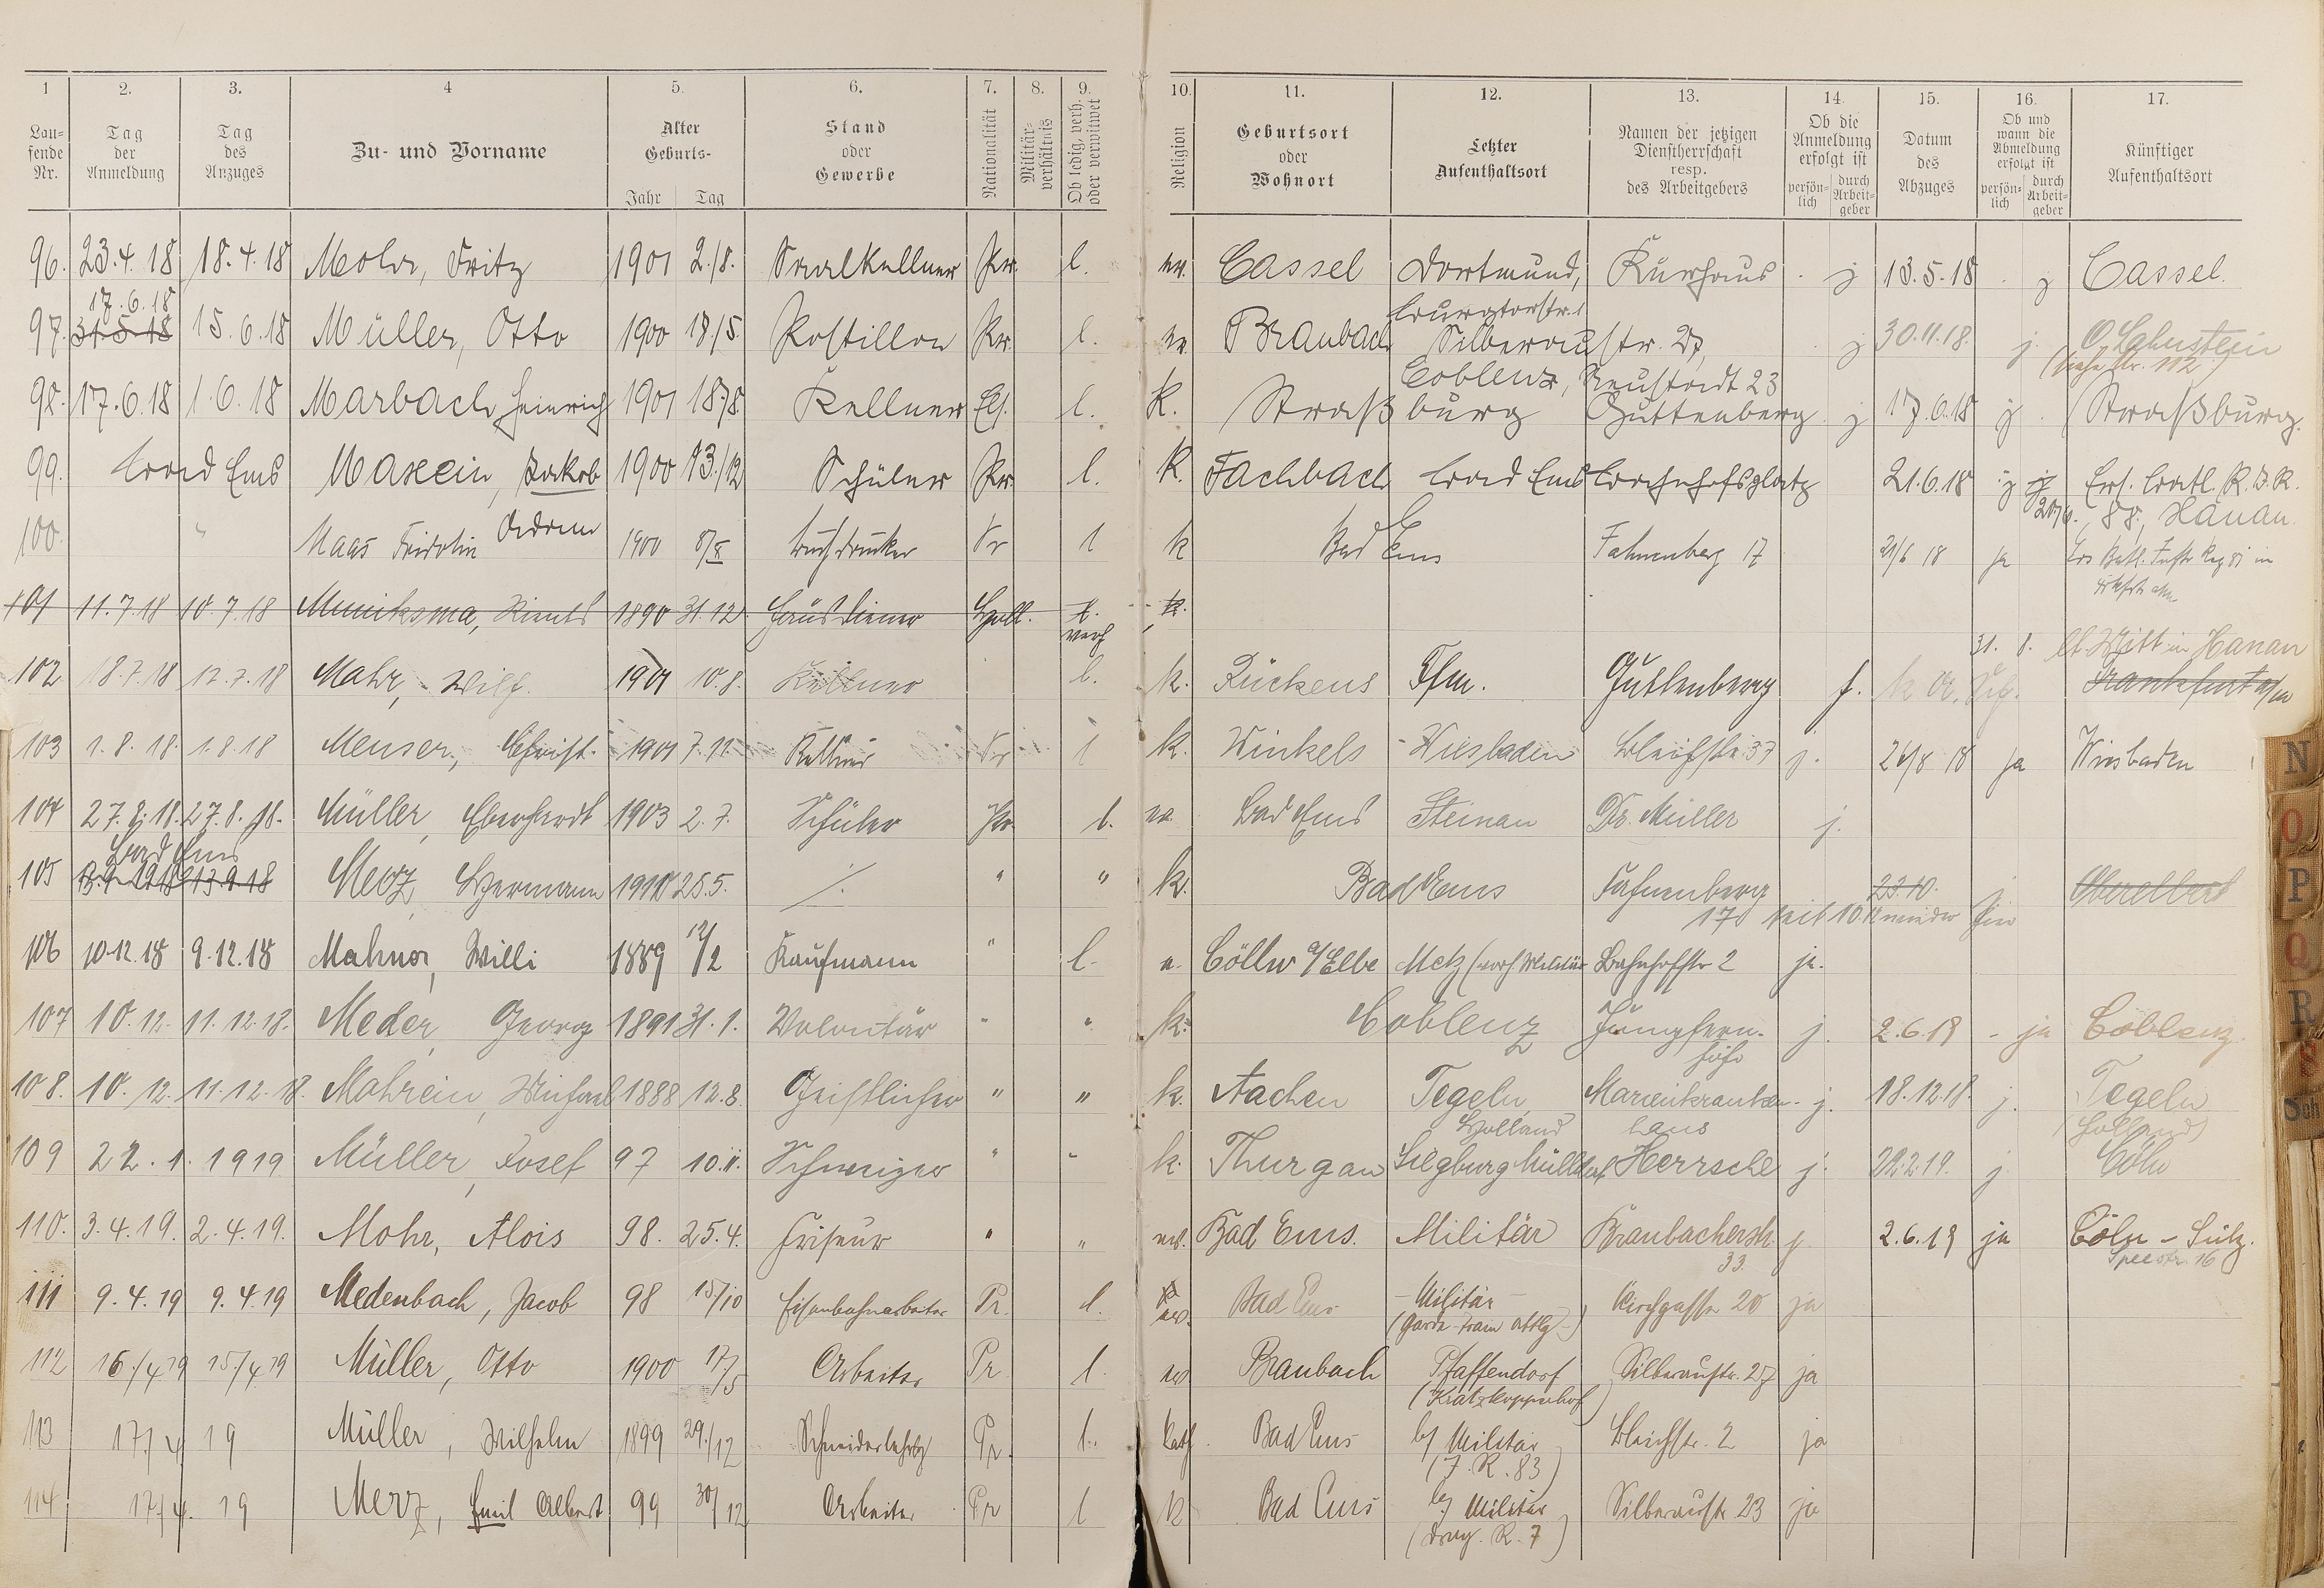 1 2. 3. 4 5. 6. 7. 8. 9. 10. 11. 12. 13. 14. 15. 16. 17.
Lau-
sende
Nr.
Tag
der
Anmeldung
Tag
des
Anzuges
Zu- und Vorname
Alter
Geburts-
Jahr Tag
Stand
oder
Gewerbe
Nationalität
Militär-
verhältnis
Ob ledig, verh.
oder verwitwet
Religion
Geburtsort
oder
Wohnort
Letzter
Aufenthaltsort
Namen der jetzigen
Dienstherrschaft
resp.
des Arbeitgebers
Ob die
Anmeldung
erfolgt ist
persön-
lich
durch
Arbeit-
geber
Datum
des
Abzuges
Ob und
wann die
Abmeldung
erfolgt ist
persön-
lich
durch
Arbeit-
geber
Künftiger
Aufenthaltsort
96. 23.4.18 18.4.18 Mohr, Fritz 1901 2./8. Saalkellner Pr. l. ev. Cassel Dortmund, Kurhaus j 13.5.18 j Cassel.
17.6.18
97. 31.5.18 15.6.18 Müller, Otto 1900 17./5. Postillon Pr. l. ev. Braubach Silberaustr. 27, j 30.11.18. j. O.Lahnstein
(siehe Nr. 112)
Coblenz, Neustadt 23
98. 17.6.18 1.6.18 Marbach Heinrich 1901 18./8. Kellner Els. l. K. Straßburg Guttenberg j 17.6.18 j Straßburg.
99. Bad Ems Maxein, Jakob 1900 13./12 Schüler Pr. l. K. Fachbach Bad Ems Bahnhofsplatz 21.6.18 j Ers. Batl. R.I.R.
88, Hanau.
100. " Maas Fridolin 1900 8/8 Buchdrucker Pr l k Bad Ems Fahnenberg 17 21/6 18 ja Ers Batl.
101 11.7.18 10.7.18 Muniksma, 1890 31.12. Hausdiener Holl. l. k.
verh
102 18.7.18 12.7.18 Mahr, Wilh. 1901 10.8. Kellner l. k. Rückers Ffm. Guttenberg j.
31. 8. Witt in Hanau
Frankfurt a/m
103 1.8.18. 1.8.18 Menser, Christ. 1901 7.11. Kellner Pr l k. Winkels Wiesbaden Bleichstr. 37 j. 26/8 18 ja Wiesbaden
104 27.8.18. 27.8.18. Müller, Eberhardt 1903 2.7. Schüler Pr. l. ev. Bad Ems Steinau Dr. Müller j.
Bad Ems
105 13.9.1918 13.9.18 Merz, Hermann 25.5. " " k. Bad Ems Fahnenberg 23.10. j Oberelbert
17 seit 10. wieder hier
106 10.12.18 9.12.18 Mahner, Willi 1889 12/2 Kaufmann " l. Cölln a/Elbe Metz (vorh. Militär Bahnhofstr 2 ja.
107 10.12. 11.12.18. Meder, Georg 1891 31.1. Volontär " " k. Coblenz Jungfern- j. 2.6.19 - ja Coblenz.
höhe
108. 10.12. 11.12.18. Mahrein, Michael 1888 12.8. Geistlicher " " k. Aachen Tegeln Marienkranken- j. 18.12.18. j. Tegeln
Holland haus (Holland)
109 22.1.1919 Müller, Josef 97 10.11. Schweizer " " k. Thurgau Siegburg Mülldorf Herrsche j. 22.2.19. j Cöln
110. 3.4.19. 2.4.19. Mohr, Alois 98. 25.4. Friseur " " ev. Bad Ems. Militär Braubacherstr. j 2.6.19 ja Cöln - Sülz.
33. Speestr. 16
111 9.4.19 9.4.19 Medenbach, Jacob 98 15/10 Eisenbahnarbeiter Pr. l. ev. Bad Ems - Militär - Kirchgasse 20 ja
(Garde-Train Abtlg.)
112 16./4 19 15./4 19 Müller, Otto 1900 17/5 Arbeiter Pr l. ev Braubach Pfaffendorf Silberaustr. 27 ja
(Kratzkoppehof)
113 17./4 19 Müller, Wilhelm 1899 29./12 Schneiderlehrlg Pr. l. kath. Bad Ems bz Militär Bleichstr. 2 ja
(J.R. 83)
114 17./4. 19 Merz, Emil Albert 99 30/12 Arbeiter Pr l k Bad Ems bz Militär Silberaustr 23 ja
(Drag. R. 7)
N
O
P
Q
R
S
Sch